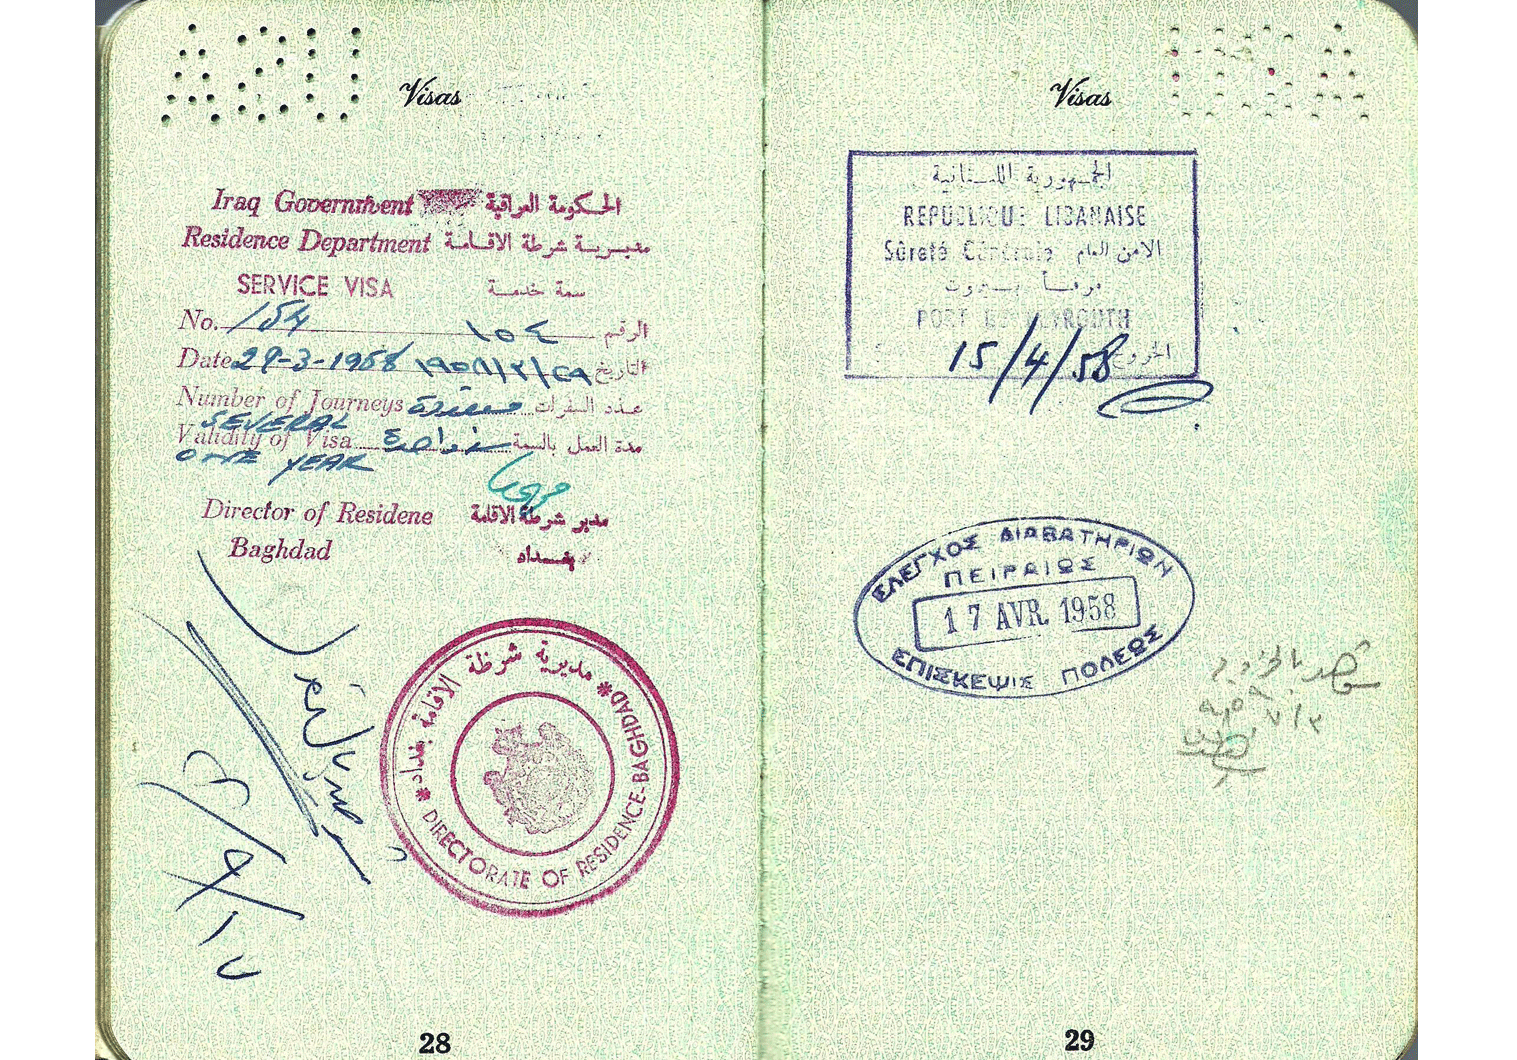 USA
Visas
Iraq Government الحكومة العراقية
Residence Department مديرية شرطة الاقامة
SERVICE VISA سمة خدمة
No. 154 ١٥٤ الرقم
Date 29-3-1958 ١٩٥٨/٣/٢٩ التاريخ
Number of Journeys متعددة عدد السفرات
SEVERAL
Validity of Visa سنة واحدة مدة العمل بالسمة
ONE YEAR
Director of Residene مدير شرطة الاقامة
Baghdad بغداد
مديرية شرطة الاقامة بغداد
DIRECTORATE OF RESIDENCE-BAGHDAD
28
USA
Visas
الجمهورية اللبنانية
REPUBLIQUE LIBANAISE
Sûreté Générale الامن العام
مرفأ بيروت
PORT DE BEYROUTH
15/4/58 الخروج
ΕΛΕΓΧΟΣ ΔΙΑΒΑΤΗΡΙΩΝ
ΠΕΙΡΑΙΩΣ
17 AVR. 1958
ΕΠΙΣΚΕΨΙΣ ΠΟΛΕΩΣ
29